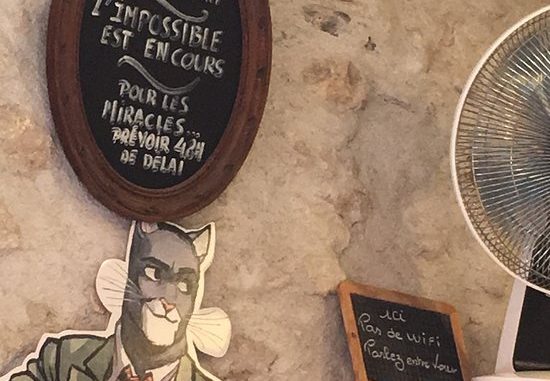 L'IMPOSSIBLE
EST EN COURS
POUR LES
MIRACLES...
PRÉVOIR 48H
DE DÉLAI
ici
Pas de wifi
Parlez entre vous